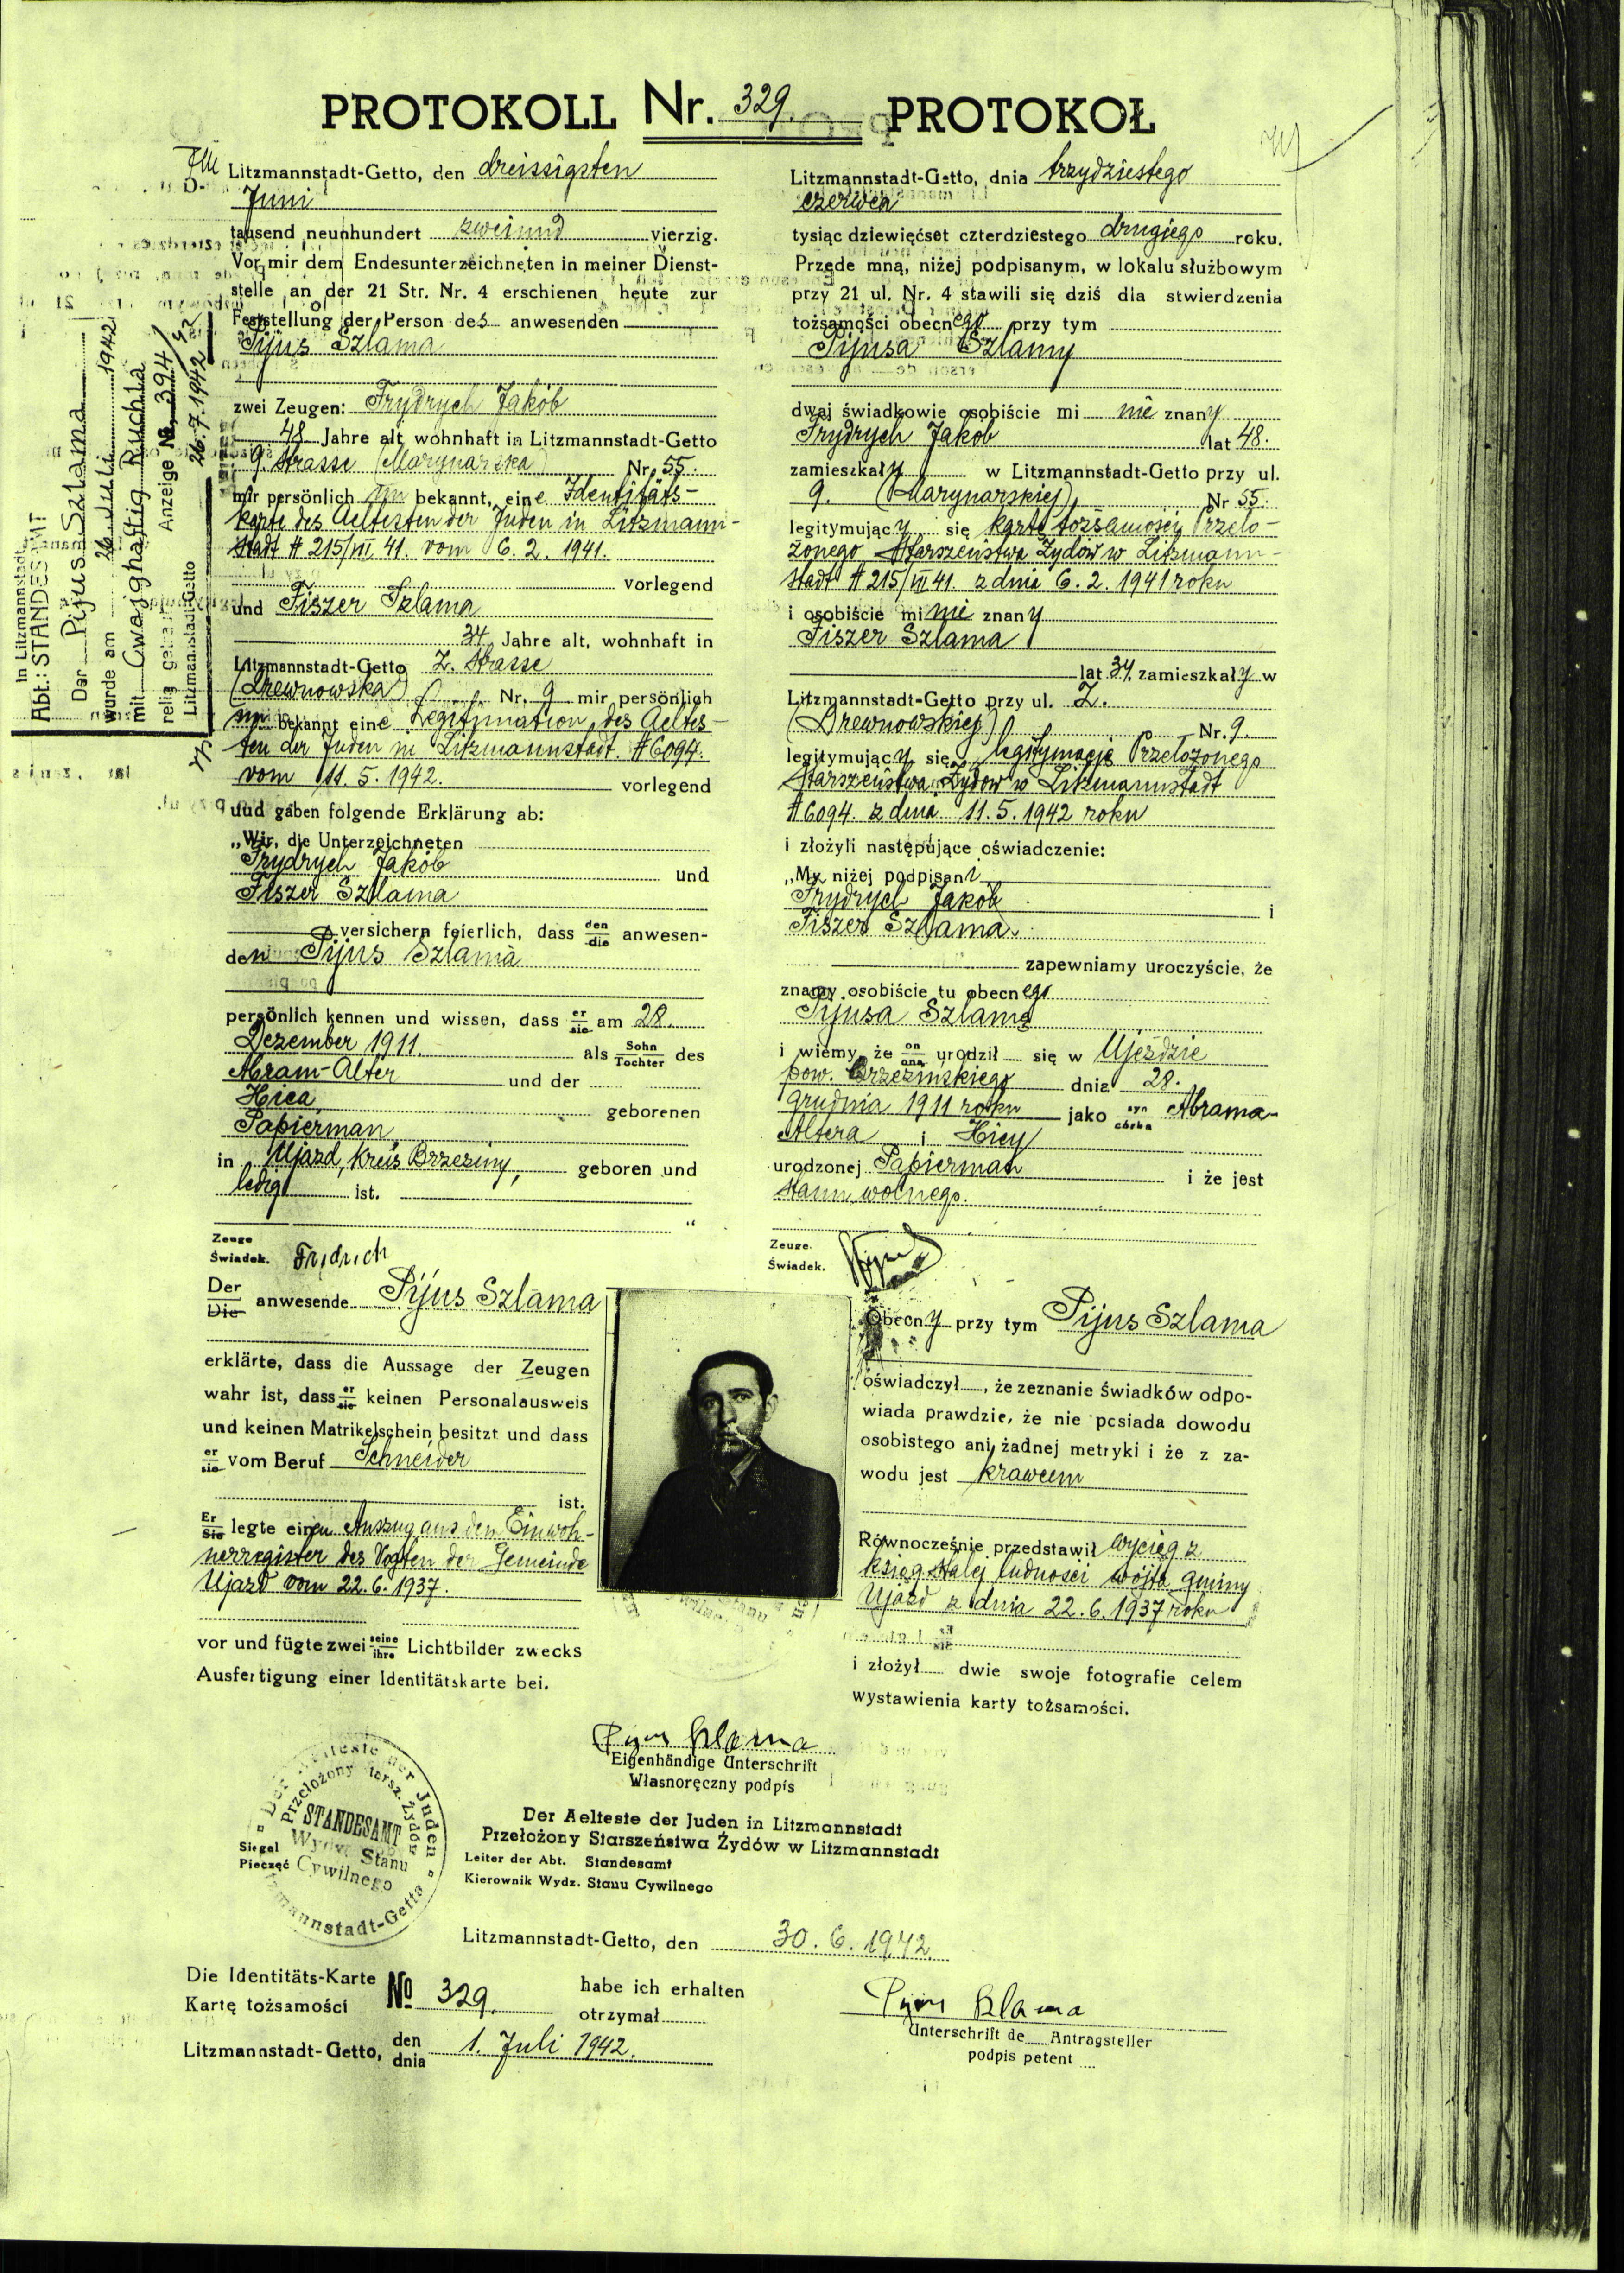 PROTOKOLL Nr. 329. PROTOKOŁ
Litzmannstadt-Getto, den dreissigsten
Juni
tausend neunhundert zweiund vierzig.
Vor mir dem Endesunterzeichneten in meiner Dienst-
stelle an der 21 Str. Nr. 4 erschienen heute zur
Feststellung der Person des anwesenden
Pijus Szlama
zwei Zeugen: Frydrych Jakób
48 Jahre alt, wohnhaft in Litzmannstadt-Getto
9. Strasse (Marynarska) Nr. 55.
mir persönlich un bekannt, eine Identitäts-
karte des Aeltesten der Juden in Litzmann-
stadt # 215/VII 41. vom 6. 2. 1941.
vorlegend
und Fiszer Szlama
34 Jahre alt, wohnhaft in
Litzmannstadt-Getto Z. Strasse
(Drewnowska) Nr. 9 mir persönlich
un bekannt eine Legitimation des Aeltes-
ten der Juden in Litzmannstadt. # 6094.
vom 11. 5. 1942. vorlegend
und gaben folgende Erklärung ab:
„Wir, die Unterzeichneten
Frydrych Jakób und
Fiszer Szlama
versichern feierlich, dass den/die anwesen-
den Pijus Szlama
persönlich kennen und wissen, dass er/sie am 28.
Dezember 1911. als Sohn/Tochter des
Abram-Alter und der
Hica geborenen
Papierman
in Ujazd, Kreis Brzeziny, geboren und
ledig ist.
"
Zeuge
Świadek. Frydrich
Der/Die anwesende Pijus Szlama
erklärte, dass die Aussage der Zeugen
wahr ist, dass er/sie keinen Personalausweis
und keinen Matrikelschein besitzt und dass
er/sie vom Beruf Schneider
ist.
Er/Sie legte einen Auszug aus dem Einwoh-
nerregister des Vogten der Gemeinde
Ujazd vom 22. 6. 1937.
vor und fügte zwei seine/ihre Lichtbilder zwecks
Ausfertigung einer Identitätskarte bei.
Litzmannstadt-Getto, dnia trzydziestego
czerwca
tysiąc dziewięćset czterdziestego drugiego roku.
Przede mną, niżej podpisanym, w lokalu służbowym
przy 21 ul. Nr. 4 stawili się dziś dla stwierdzenia
tożsamości obecnego przy tym
Pijusa Szlamy
dwaj świadkowie osobiście mi nie znany
Frydrych Jakób lat 48.
zamieszkały w Litzmannstadt-Getto przy ul.
9. (Marynarskiej) Nr 55.
legitymujący się kartą tożsamości Przeło-
żonego Starszeństwa Żydów w Litzmann-
stadt # 215/VII 41. z dnia 6. 2. 1941 roku
i osobiście mi nie znany
Fiszer Szlama
lat 34. zamieszkały w
Litzmannstadt-Getto przy ul. Z.
(Drewnowskiej) Nr. 9.
legitymujący się legitymacją Przełożonego
Starszeństwa Żydów w Litzmannstadt
# 6094. z dnia 11. 5. 1942 roku
i złożyli następujące oświadczenie:
„My niżej podpisani
Frydrych Jakób i
Fiszer Szlama
zapewniamy uroczyście, że
znamy osobiście tu obecnego
Pijusa Szlamę
i wiemy, że on/ona urodził się w Ujeździe
pow. Brzezińskiego dnia 28.
grudnia 1911 roku jako syn/córka Abrama-
Altera i Hicy
urodzonej Papierman i że jest
stanu wolnego.
Zeuge.
Świadek.
Obecny przy tym Pijus Szlama
oświadczył, że zeznanie świadków odpo-
wiada prawdzie, że nie posiada dowodu
osobistego ani żadnej metryki i że z za-
wodu jest krawcem
Równocześnie przedstawił wyciąg z
ksiąg stałej ludności wójta gminy
Ujazd z dnia 22. 6. 1937 roku
i złożył dwie swoje fotografie celem
wystawienia karty tożsamości.
Szlama
Eigenhändige Unterschrift
Własnoręczny podpis
Der Aelteste der Juden in Litzmannstadt
Przełożony Starszeństwa Żydów w Litzmannstadt
Leiter der Abt. Standesamt
Kierownik Wydz. Stanu Cywilnego
Siegel
Pieczęć
Der Aelteste der Juden
Przełożony Starsz. Żydów
STANDESAMT
Wydz. Stanu
Cywilnego
Litzmannstadt-Getto
Litzmannstadt-Getto, den 30. 6. 1942.
Die Identitäts-Karte
Kartę tożsamości № 329. habe ich erhalten
otrzymał
Litzmannstadt-Getto, den/dnia 1. Juli 1942.
Szlama
Unterschrift de Antragsteller
podpis petent
in Litzmannstadt
Abt.: STANDESAMT
Der Pijus Szlama
wurde am 26. Juli 1942
mit Cwajghaftig Ruchla
relig. Anzeige №. 394/42
Litzmannstadt-Getto 26.7.1942